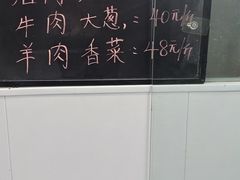 牛肉大葱：40元/斤
羊肉香菜：48元/斤